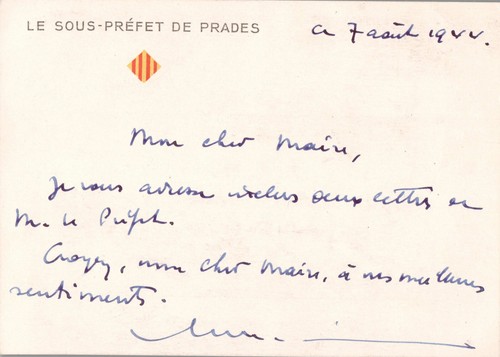 LE SOUS-PRÉFET DE PRADES
ce 7 août 1944.
Mon cher Maire,
Je vous adresse inclus deux lettres de
M. le Préfet.
Croyez, mon cher Maire, à mes meilleurs
sentiments.